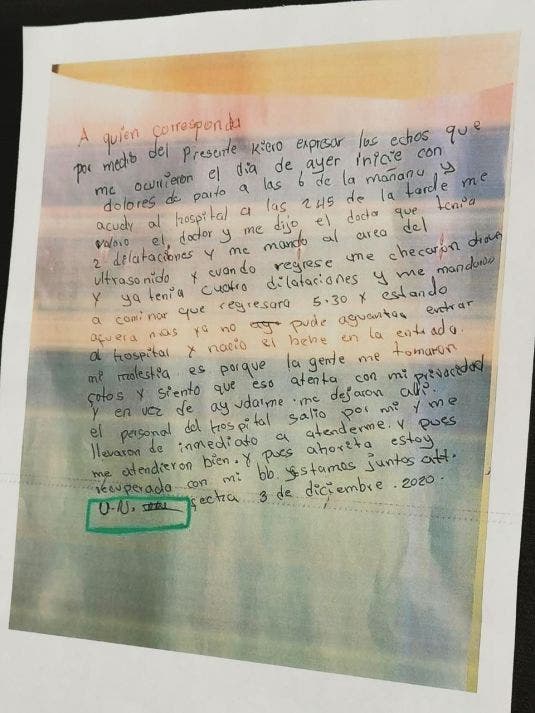 A quien corresponda
por medio del presente Kiero expresar los echos que
me ocurrieron el dia de ayer inicie con
dolores de parto a las 6 de la mañana y
acudy al hospital a las 245 de la tarde me
valoro el doctor y me dijo el doctor que tenia
2 dilataciones y me mando al area del
ultrasonido x cuando regrese me checarón
y ya tenia cuatro dilataciones y me mandaron
a caminar que regresara 5.30 x estando
afuera mas ya no pude aguantas entrar
al Hospital x nacio el bebe en la entrada.
mi molestia es porque la gente me tomaron
fotos x siento que eso atenta con mi privacidad
y en vez de ayudarme. me dejaron alli.
el personal del Hospital salio por mi y me
llevaron de inmediato a atenderme. y pues
me atendieron bien. y pues ahorita estoy
recuperada con mi bb. y estamos juntos att.
U.N. fectra 3 de diciembre. 2020.